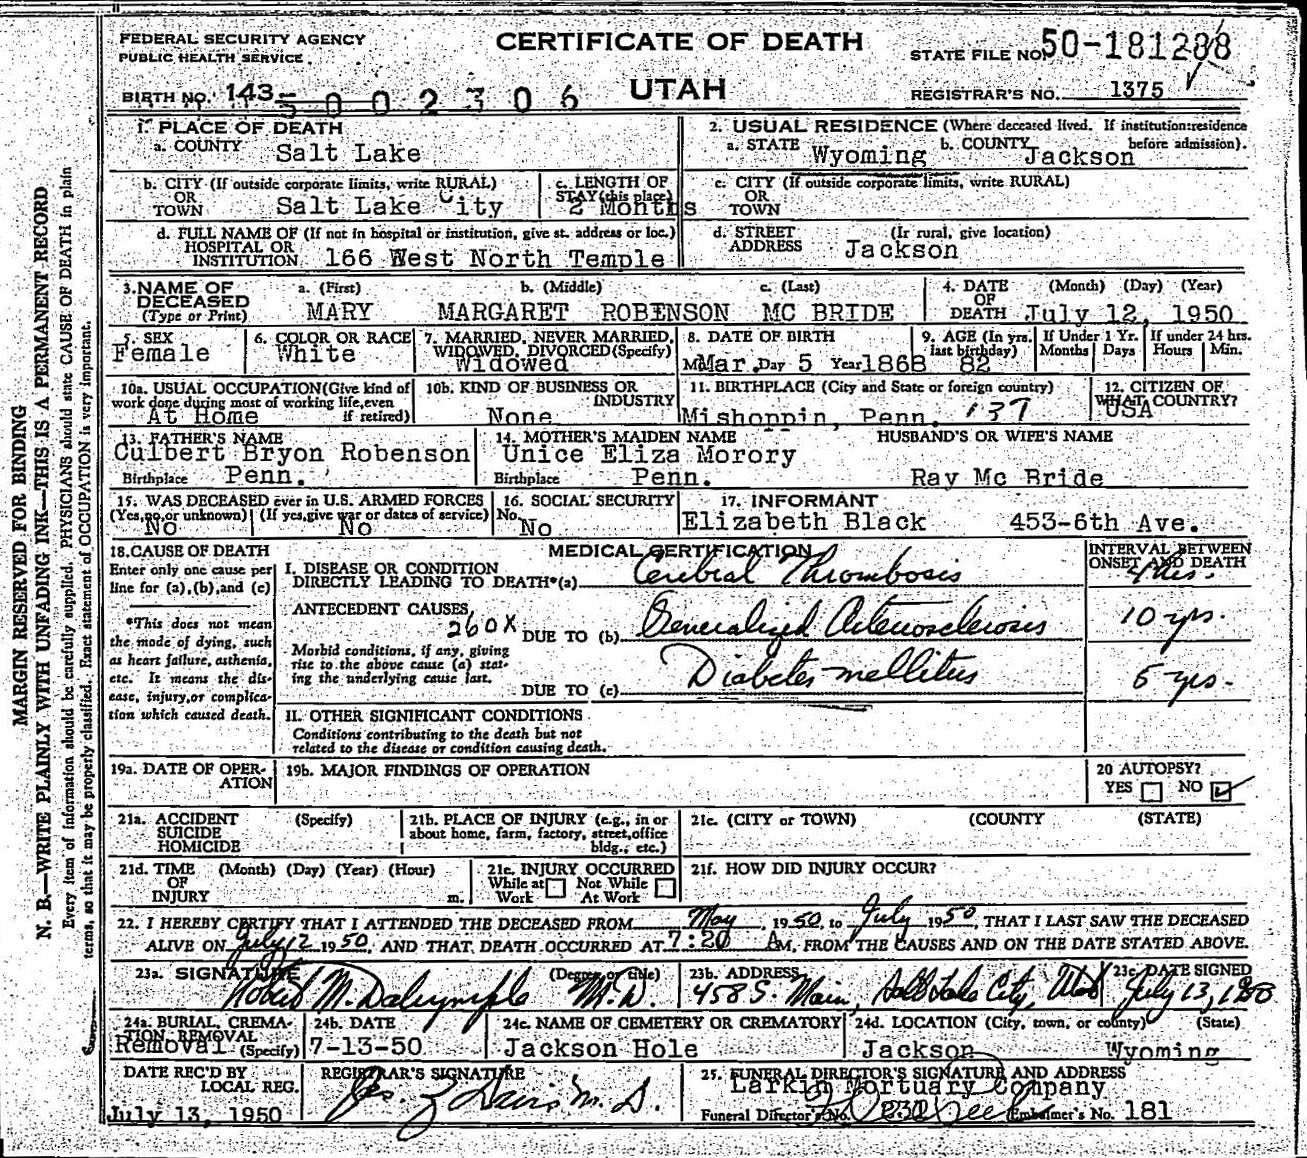 FEDERAL SECURITY AGENCY
PUBLIC HEALTH SERVICE
CERTIFICATE OF DEATH
UTAH
STATE FILE NO. 50-181288
BIRTH NO. 143-
5002306
REGISTRAR'S NO. 1375
1. PLACE OF DEATH
a. COUNTY Salt Lake
2. USUAL RESIDENCE (Where deceased lived. If institution: residence before admission).
a. STATE Wyoming b. COUNTY Jackson
b. CITY (If outside corporate limits, write RURAL)
OR
TOWN Salt Lake City
c. LENGTH OF
STAY (this place)
2 Months
c. CITY (If outside corporate limits, write RURAL)
OR
TOWN
d. FULL NAME OF (If not in hospital or institution, give st. address or loc.)
HOSPITAL OR
INSTITUTION 166 West North Temple
d. STREET (Ir rural, give location)
ADDRESS Jackson
3. NAME OF DECEASED (Type or Print)
a. (First) b. (Middle) c. (Last)
MARY MARGARET ROBINSON MC BRIDE
4. DATE OF DEATH (Month) (Day) (Year)
July 12, 1950
5. SEX
Female
6. COLOR OR RACE
White
7. MARRIED, NEVER MARRIED,
WIDOWED, DIVORCED (Specify)
Widowed
8. DATE OF BIRTH
Mar. Day 5 Year 1868
9. AGE (In yrs. last birthday)
82
If Under 1 Yr.
Months Days
If under 24 hrs.
Hours Min.
10a. USUAL OCCUPATION (Give kind of
work done during most of working life, even
if retired)
At Home
10b. KIND OF BUSINESS OR
INDUSTRY
None
11. BIRTHPLACE (City and State or foreign country)
Mishoppin, Penn. 137
12. CITIZEN OF
WHAT COUNTRY?
USA
13. FATHER'S NAME
Culbert Bryon Robenson
Birthplace Penn.
14. MOTHER'S MAIDEN NAME
Unice Eliza Morory
Birthplace Penn.
HUSBAND'S OR WIFE'S NAME
Ray Mc Bride
15. WAS DECEASED ever in U.S. ARMED FORCES
(Yes, no, or unknown) (If yes, give war or dates of service)
No No
16. SOCIAL SECURITY
No.
No
17. INFORMANT
Elizabeth Black 453-6th Ave.
18. CAUSE OF DEATH
Enter only one cause per
line for (a), (b), and (c)
*This does not mean
the mode of dying, such
as heart failure, asthenia,
etc. It means the dis-
ease, injury, or complica-
tion which caused death.
MEDICAL CERTIFICATION
INTERVAL BETWEEN
ONSET AND DEATH
I. DISEASE OR CONDITION
DIRECTLY LEADING TO DEATH*(a) Cerebral Thrombosis
ANTECEDENT CAUSES
260X DUE TO (b) Generalized Arteriosclerosis 10 yrs.
Morbid conditions, if any, giving
rise to the above cause (a) stat-
ing the underlying cause last.
DUE TO (c) Diabetes mellitus 5 yrs.
II. OTHER SIGNIFICANT CONDITIONS
Conditions contributing to the death but not
related to the disease or condition causing death.
19a. DATE OF OPER-
ATION
19b. MAJOR FINDINGS OF OPERATION
20 AUTOPSY?
YES NO
21a. ACCIDENT (Specify)
SUICIDE
HOMICIDE
21b. PLACE OF INJURY (e.g., in or
about home, farm, factory, street, office
bldg., etc.)
21c. (CITY or TOWN) (COUNTY) (STATE)
21d. TIME (Month) (Day) (Year) (Hour)
OF
INJURY m.
21e. INJURY OCCURRED
While at Work Not While At Work
21f. HOW DID INJURY OCCUR?
22. I HEREBY CERTIFY THAT I ATTENDED THE DECEASED FROM May, 1950, to July 1950, THAT I LAST SAW THE DECEASED
ALIVE ON July 12 1950, AND THAT DEATH OCCURRED AT 7:20 AM, FROM THE CAUSES AND ON THE DATE STATED ABOVE.
23a. SIGNATURE (Degree or title)
Robert M. Dalrymple M.D.
23b. ADDRESS
458 S. Main, Salt Lake City, Utah
23c. DATE SIGNED
July 13, 1950
24a. BURIAL, CREMA-
TION, REMOVAL (Specify)
Removal
24b. DATE
7-13-50
24c. NAME OF CEMETERY OR CREMATORY
Jackson Hole
24d. LOCATION (City, town, or county) (State)
Jackson Wyoming
DATE REC'D BY
LOCAL REG.
July 13, 1950
REGISTRAR'S SIGNATURE
M.D.
25. FUNERAL DIRECTOR'S SIGNATURE AND ADDRESS
Larkin Mortuary Company
Funeral Director's No. 231 Embalmer's No. 181
MARGIN RESERVED FOR BINDING
N. B.—WRITE PLAINLY WITH UNFADING INK—THIS IS A PERMANENT RECORD
Every item of information should be carefully supplied. PHYSICIANS should state CAUSE OF DEATH in plain
terms, so that it may be properly classified. Exact statement of OCCUPATION is very important.